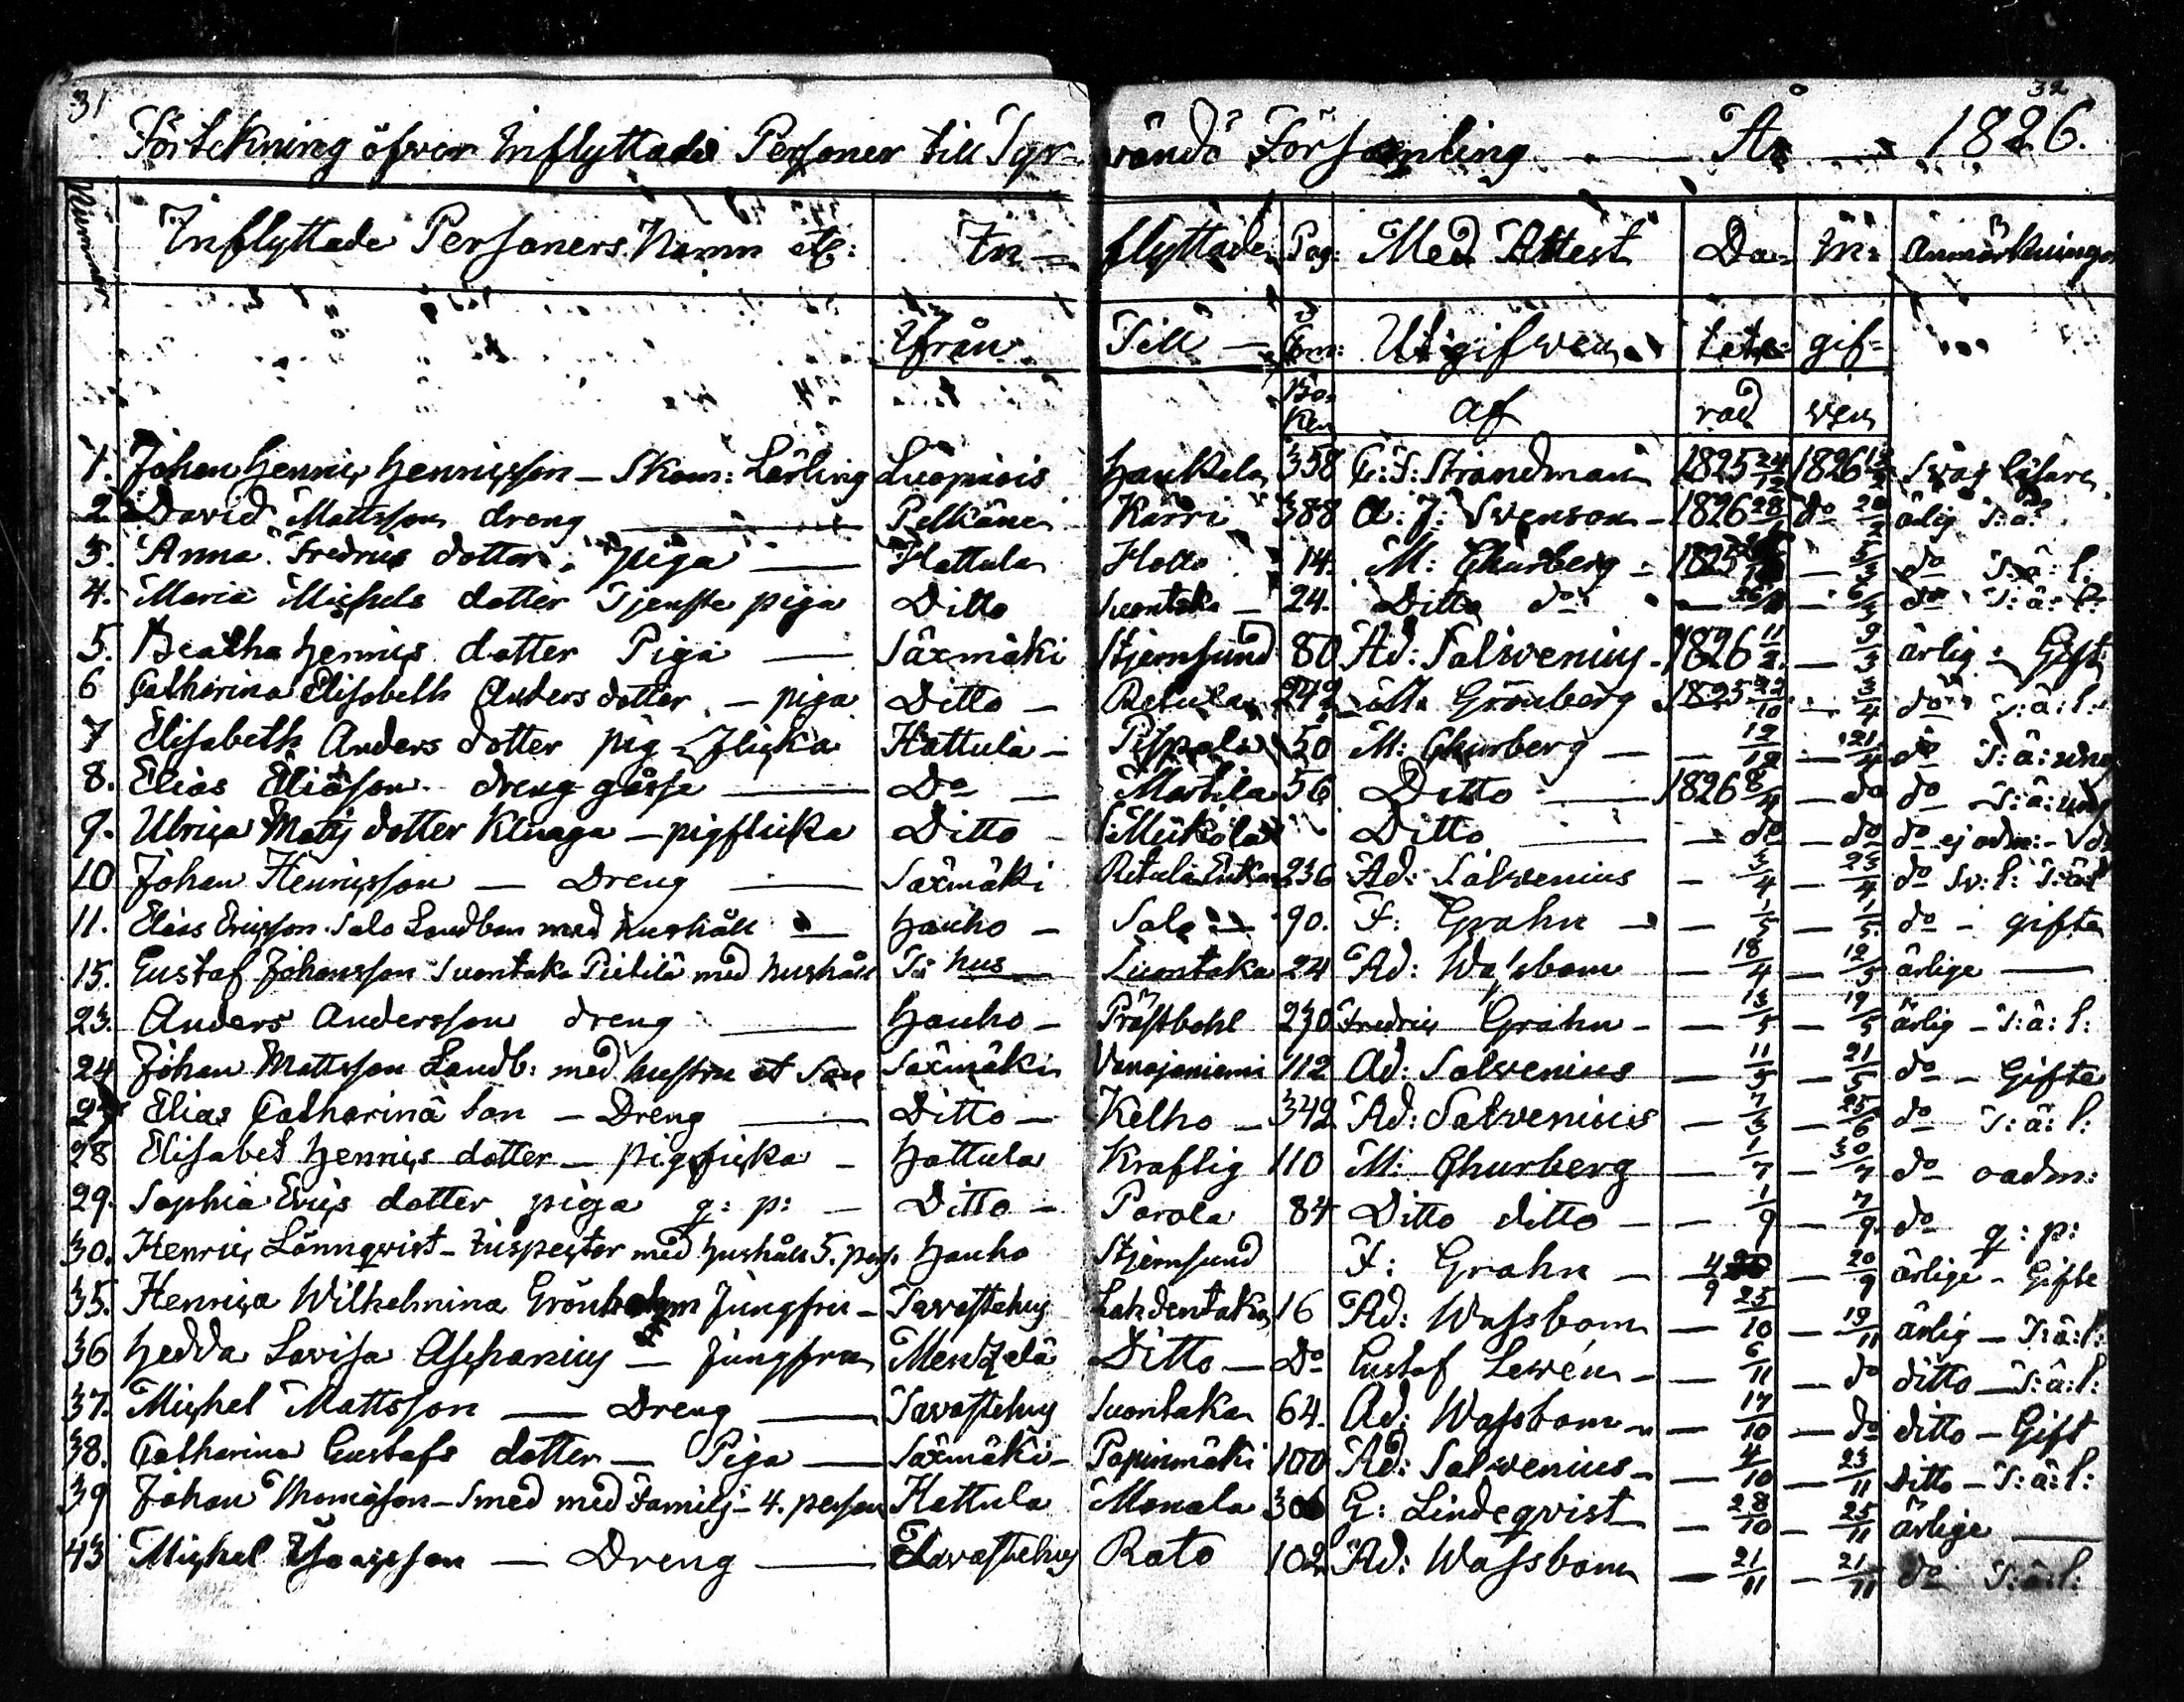 31 32
Förtekning öfver Inflyttade Personer till Tyrvändö Församling — År — 1826.
Nummer Inflyttade Personers Namn etc: In- flyttade Pag: Med Attest Da- In- Anmärkningar
Ifrån Till — Com: Utgifven tete- gif-
Bo- ken af rad ven
1. Johan Henrics Henricsson — Skom: Lärling Luopiois Haukila 358 C: J: Strandman 1825 24/12 1826 Svag läsare
2. David Mattsson dreng — Pelkäne Kärri 388 A: J: Svenson — 1826 do ärlig T: ä:
3. Anna Fredrics dotter piga — Hattula Hotto 14. M: Churberg 1825 — do T: ä: l:
4. Maria Michels dotter Tjenste piga Ditto Suontaka — 24. Ditto do — — do T: ä: l:
5. Beatha Henrics dotter Piga — Säxmäki Stjernsund 80 Ad: Salvenius — 1826 11/2 — 9/3 ärlig — Gift
6 Catharina Elisabeth Anders dotter — piga Ditto — Retula 242 Grönberg 1825 22/10 — 3/4 do T: ä: l:
7 Elisabeth Anders dotter pig-flicka Hattula — Pispala 50 M: Churberg — — 12/12 — 21/4 do T: ä: ung
8. Elias Eliason dreng gåsse — Do — Mattila 56 Ditto — 1826 8/4 — do do T: ä: ung
9. Ulrica Mats dotter Kluaga — pigflicka Ditto — Mickola Ditto — — do — do do ej adm: —
10 Johan Henricsson — Dreng — Säxmäki Retula 236 Ad: Salvenius — 3/4 — 23/4 do Sv: l: T: ä:
11. Elias Ericsson Salo Landbon med hushåll — Hauho — Salo — 90. F: Grahn — — 1/5 — 1/5 do — gifte
15. Gustaf Johansson Suontaka Pietilä med hushåll T: hus — Suontaka 24 Ad: Wassbom — 18/4 — 12/5 ärlige —
23. Anders Andersson dreng — Hauho — Prästbohl 230 Fredric Grahn — — 13/5 — 19/5 ärlig — T: ä: l:
24 Johan Mattsson Landb: med hustru et Son Säxmäki Vanajaniemi 112 Ad: Salvenius — 11/5 — 21/5 do — Gifte
27 Elias Catharina Son — Dreng — Ditto — Kelho — 342 Ad: Salvenius — 7/3 — 25/6 do T: ä: l:
28 Elisabet Henrics dotter — pigflicka — Hattula Kraftig 110 M: Churberg — 1/7 — 30/7 do oadm:
29. Sophia Erics dotter piga q: p: — Ditto — Parola 84 Ditto ditto — — 1/9 — 7/9 do q: p:
30. Henric Lönnqvist — Inspector med hushåll 5. pers. Hauho Stjernsund F: Grahn — 4/9 — 20/9 ärlige — Gifte
35. Henrica Wilhelmina Grönholm Jungfru — Tavastehus Lahdentaka 16 Ad: Wassbom — 25/10 — 19/11 ärlig — T: ä: l:
36 Hedda Lovisa Aschanius — Jungfru Mentzelä Ditto — Do Gustaf Levén — — 6/11 — do ditto — T: ä: l:
37. Michel Mattsson — Dreng — Tavastehus Suontaka 64. Ad: Wassbom — — 17/10 — do ditto — Gift
38. Catharina Gustafs dotter — Piga — Säxmäki — Papinmäki 100 Ad: Salvenius — — 4/10 — 23/11 Ditto — T: ä: l:
39 Johan Thomason — Smed med Familj — 4. person Hattula Monala 306 G: Lindeqvist — 28/10 — 25/11 ärlige —
43 Michel Isacsson — Dreng — Tavastehus Rato 102 Ad: Wassbom — 21/11 — 21/11 do T: ä: l: